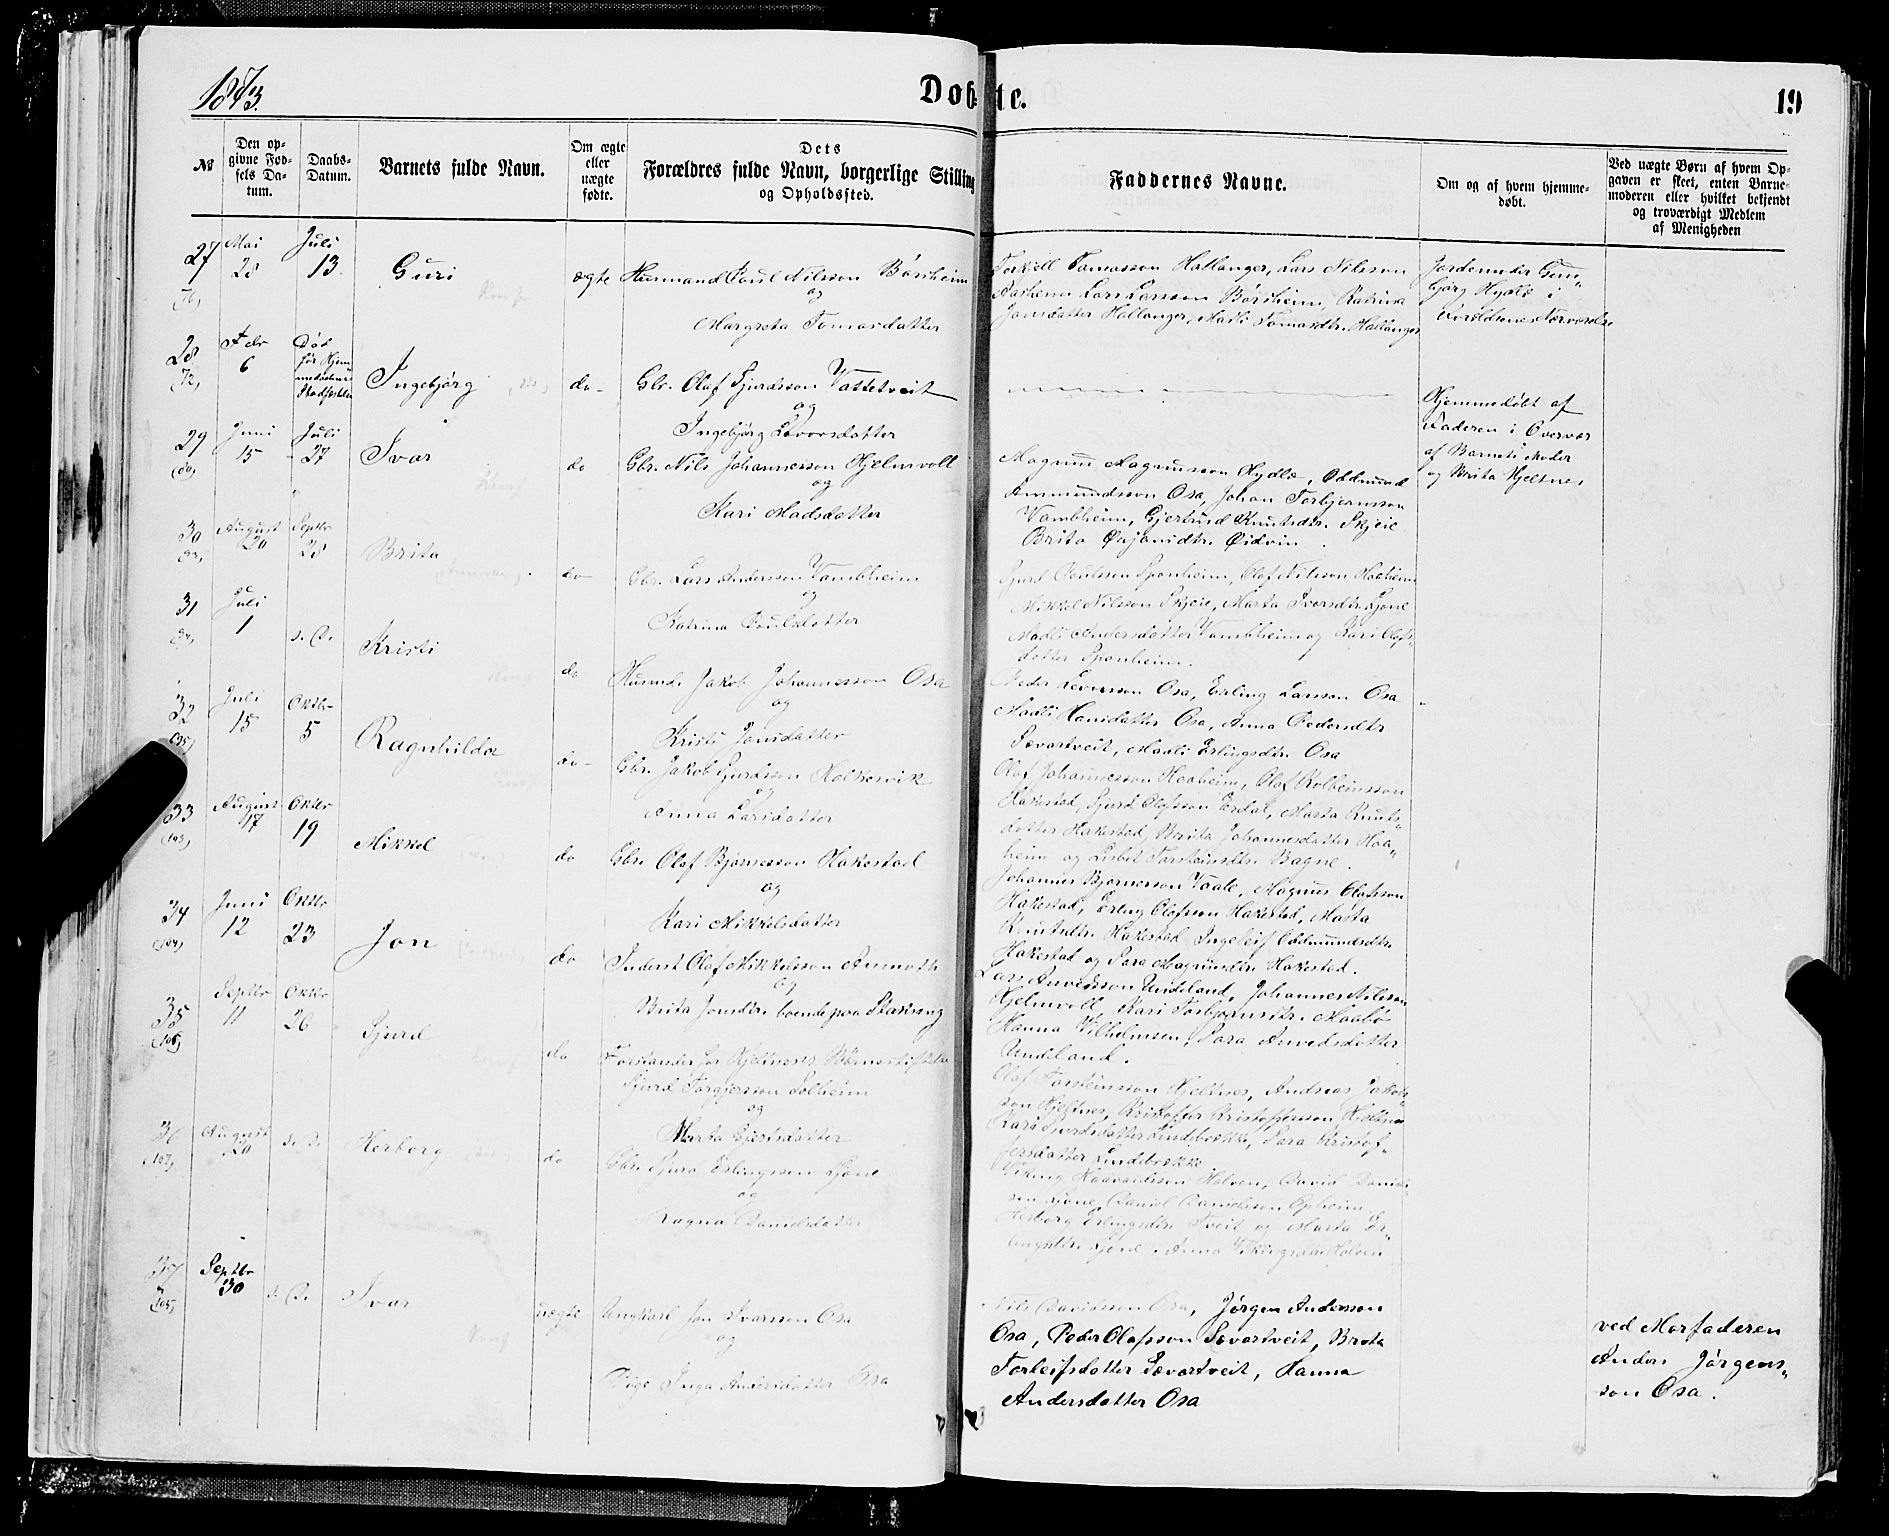 1873.
Døbte.
19
№
Den opgivne Fødsels Datum.
Daabs-Datum.
Barnets fulde Navn.
Om ægte eller uægte fødte.
Dets Forældres fulde Navn, borgerlige Stilling og Opholdssted.
Faddernes Navne.
Om og af hvem hjemmedøbt.
Ved uægte Børn af hvem Opgaven er skeet, enten Barnemoderen eller hvilket bekjendt og troværdigt Medlem af Menigheden
27 Mai 28 Juli 13. Guri ægte Husmand Poul Nilsson Børsheim
og
Margreta Tomasdatter
Torkjell Tomasson Hallanger, Lars Nilsson
Aasheim Lars Larsson Børsheim, Katrina
Jonsdatter Hallanger, Madli Tomasdtr. Hallanger
Jordemoder
Hydle i
Forældrenes Nærværelse
28 Febr 6 Død før Hjemmedaabens Stadfæstelse Ingebjørg do Gbr. Olaf Sjurdsson Vattetveit
og
Ingebjørg Lovorsdatter
Hjemmedøbt af
Faderen i Overvær
af Barnets Moder
og Brita Hjeltnes
29 Juni 15 Juli 27 Ivar do Gbr. Nils Johannesson Hjelmvoll
og
Kari Madsdatter
Magnus Magnusson Hydle, Oddmund
Ammundsson Osa, Johan Torbjørnsson
Vambheim, Gjertrud Knutsdtr. Skjeie
Brita Ørjansdtr. Øidvin.
30 August 20 Septbr 28 Brita do Gbr. Lars Andersson Vambheim
og
Katrina Poulsdatter
Sjurd Poulsson Sponheim, Olaf Nilsson Haaheim
Mikkel Nilsson Skjeie, Marta Ivarsdtr. Ljone
Madli Andersdatter Vambheim og Kari Olafsdatter
Sponheim.
31 Juli 1 d. D. Kristi do Husmd. Jakob Johannesson Osa
og
Kristi Jonsdatter
Peder Larsson Osa, Erling Larsson Osa
Madli Hansdatter Osa, Anna Pedersdtr
Sævartveit, Madli Erlingsdtr. Osa
32 Juli 15 Oktbr 5 Ragnhilda do Gbr. Jakob Sjurdsson Holkesvik
og
Anna Larsdatter
Olaf Johannesson Haaheim, Olaf Kolbeinsson
Hakestad, Sjurd Olafsson Erdal, Marta Knutsdatter
Hakestad, Brita Johannesdatter Haaheim
og Lisbet Torsteinsdtr. Bagne.
33 August 17 Oktbr 19 Mikkel do Gbr. Olaf Bjørnesson Hakestad
og
Kari Mikkelsdatter
Johannes Bjørnesson Vaale, Magnus Olafsson
Hakestad, Erling Olafsson Hakestad, Marta
Knutsdtr. Hakestad Ingeleif Oddmundsdtr.
Hakestad og Sara Magnusdtr. Hakestad.
34 Juni 12 Oktbr 23 Jon do Inderst Olaf Mikkelsson
og
Brita Jonsdtr. boende paa
Lars Anvedsson Undeland, Johannes Nilsson
Hjelmvoll Kari Torbjørnsdtr. Maabø
Hanna Vilhelmsen, Sara Anvedsdatter
Undeland.
35 Septbr 11 Oktbr 26 Sjurd do Forstander for Hjeltnæs Børnestiftelse
Sjurd Torgjersson Solheim
og
Marta Gjertsdatter
Olaf Torsteinsson Hjeltnes, Andreas Jakobsson
Hjeltnes, Kristoffer Kristoffersson Hjeltnes
Kari Sjurdsdatter Lindebrække, Sara Kristoffersdatter
Lindebrække
36 August 20 d. D. Herborg do Gbr. Sjurd Erlingsson Ljone
og
Ragna Danielsdatter
Viking Haavardsson Holven, David Danielsson
Ljone, Daniel Danielsson Opheim
Herborg Erlingsdtr. Tveit og Marta Erlingsdtr.
Ljone, Anna Vikingsdtr Holven
37 Septbr 30 d. D. Ivar uægte Ungkarl Jon Ivarsson Osa
og
Pige Inga Andersdatter Osa
Nils Davidsson Osa, Jørgen Andersson
Osa, Peder Olafsson Sævartveit, Brita
Torleifsdatter Sævartveit, Hanna
Andersdatter Osa
ved Morfaderen
Anders Jørgensson
Osa.